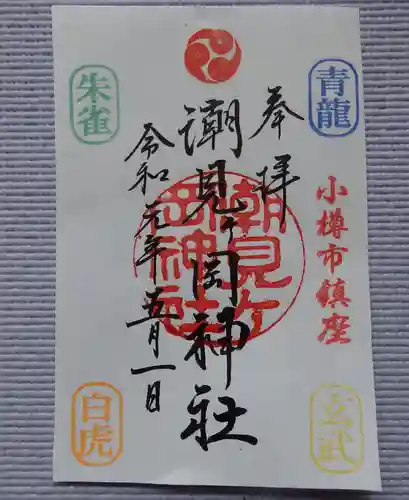 青龍
奉拝
小樽市鎮座
潮見ヶ岡神社
潮見ヶ岡神社
令和元年五月一日
朱雀
白虎
玄武